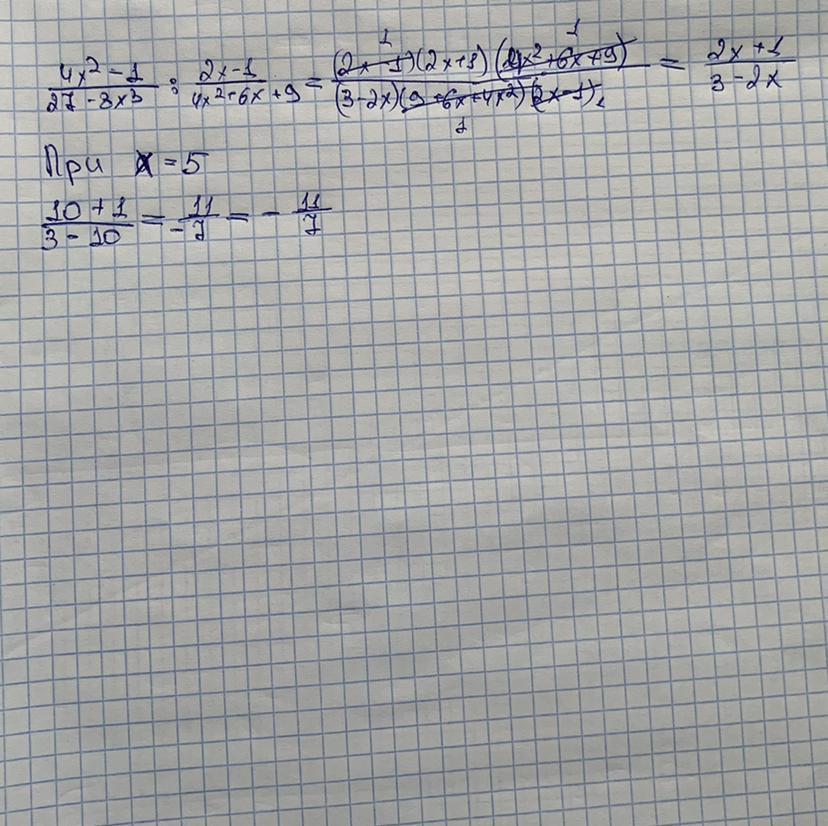 (4x² - 1)/(27 - 8x³) : (2x - 1)/(4x² + 6x + 9) = ((2x - 1)(2x + 1)(4x² + 6x + 9))/((3 - 2x)(9 + 6x + 4x²)(2x - 1)) = (2x + 1)/(3 - 2x)
При x = 5
(10 + 1)/(3 - 10) = 11/-7 = - 11/7